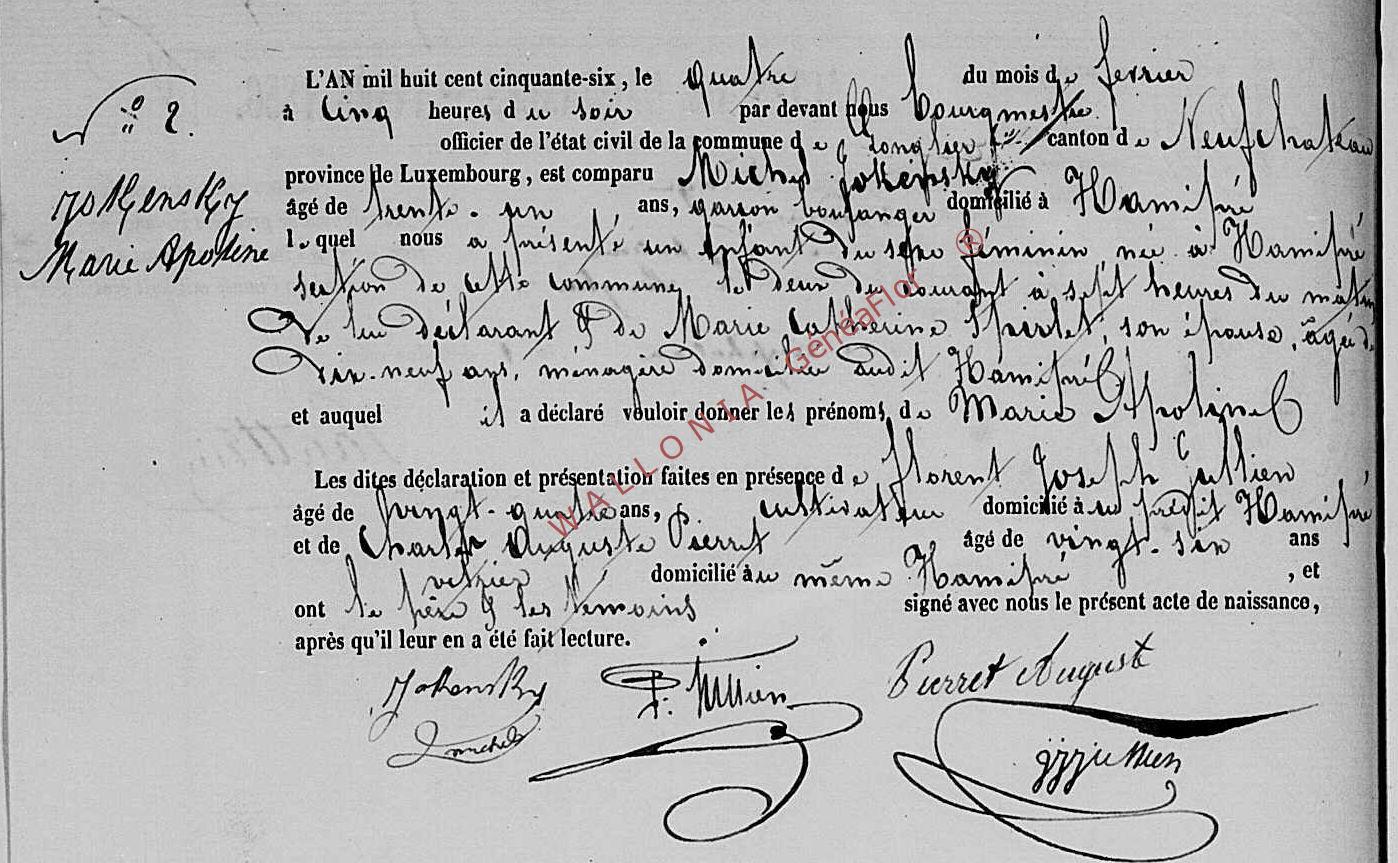 N° 2.
Jokensky
Marie Apoline
L'AN mil huit cent cinquante-six, le quatre du mois de fevrier
à cinq heures du soir par devant nous bourgmestre
officier de l'état civil de la commune de Longlier canton de Neufchateau
province de Luxembourg, est comparu Michel Jokensky
âgé de trente-un ans, garçon boulanger domicilié à Hamipré
lequel nous a présenté un enfant du sexe féminin née à Hamipré
section de cette commune, le deux du courant à sept heures du matin
de lui déclarant & de Marie Catherine Spirlet, son épouse, agée de
dix-neuf ans, ménagère domiciliée audit Hamipré
et auquel il a déclaré vouloir donner les prénoms de Marie Apoline
Les dites déclaration et présentation faites en présence de florent Joseph Jullien,
âgé de vingt-quatre ans, cultivateur domicilié à au prédit Hamipré
et de Charles Auguste Pierret âgé de vingt-six ans
domicilié à au même Hamipré, et
ont le père & les témoins signé avec nous le présent acte de naissance,
après qu'il leur en a été fait lecture.
Jokensky
michel
F. Jullien
Pierret August
jjjjullien
WALLONIA GénéaFlor ®